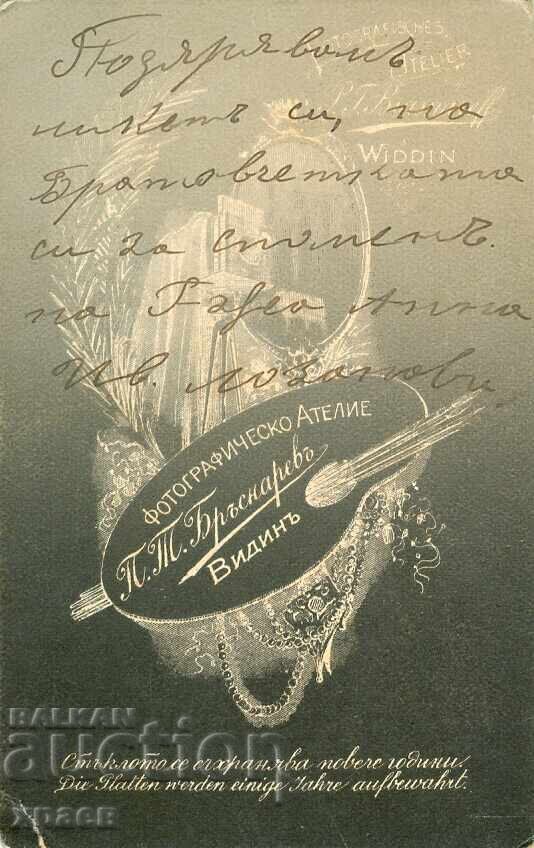 Подарявамъ
ликътъ си, на
Братовчетката
си за споменъ.
на Анна
Ив. Лозанови,
PHOTOGRAFISCHES
ATELIER
P. T.
WIDDIN
ФОТОГРАФИЧЕСКО АТЕЛИЕ
П. Т. Бръснаревъ
ВИДИНЪ
Стъклото се съхранява повече години.
Die Platten werden einige Jahre aufbewahrt.
BALKAN
auction
храев